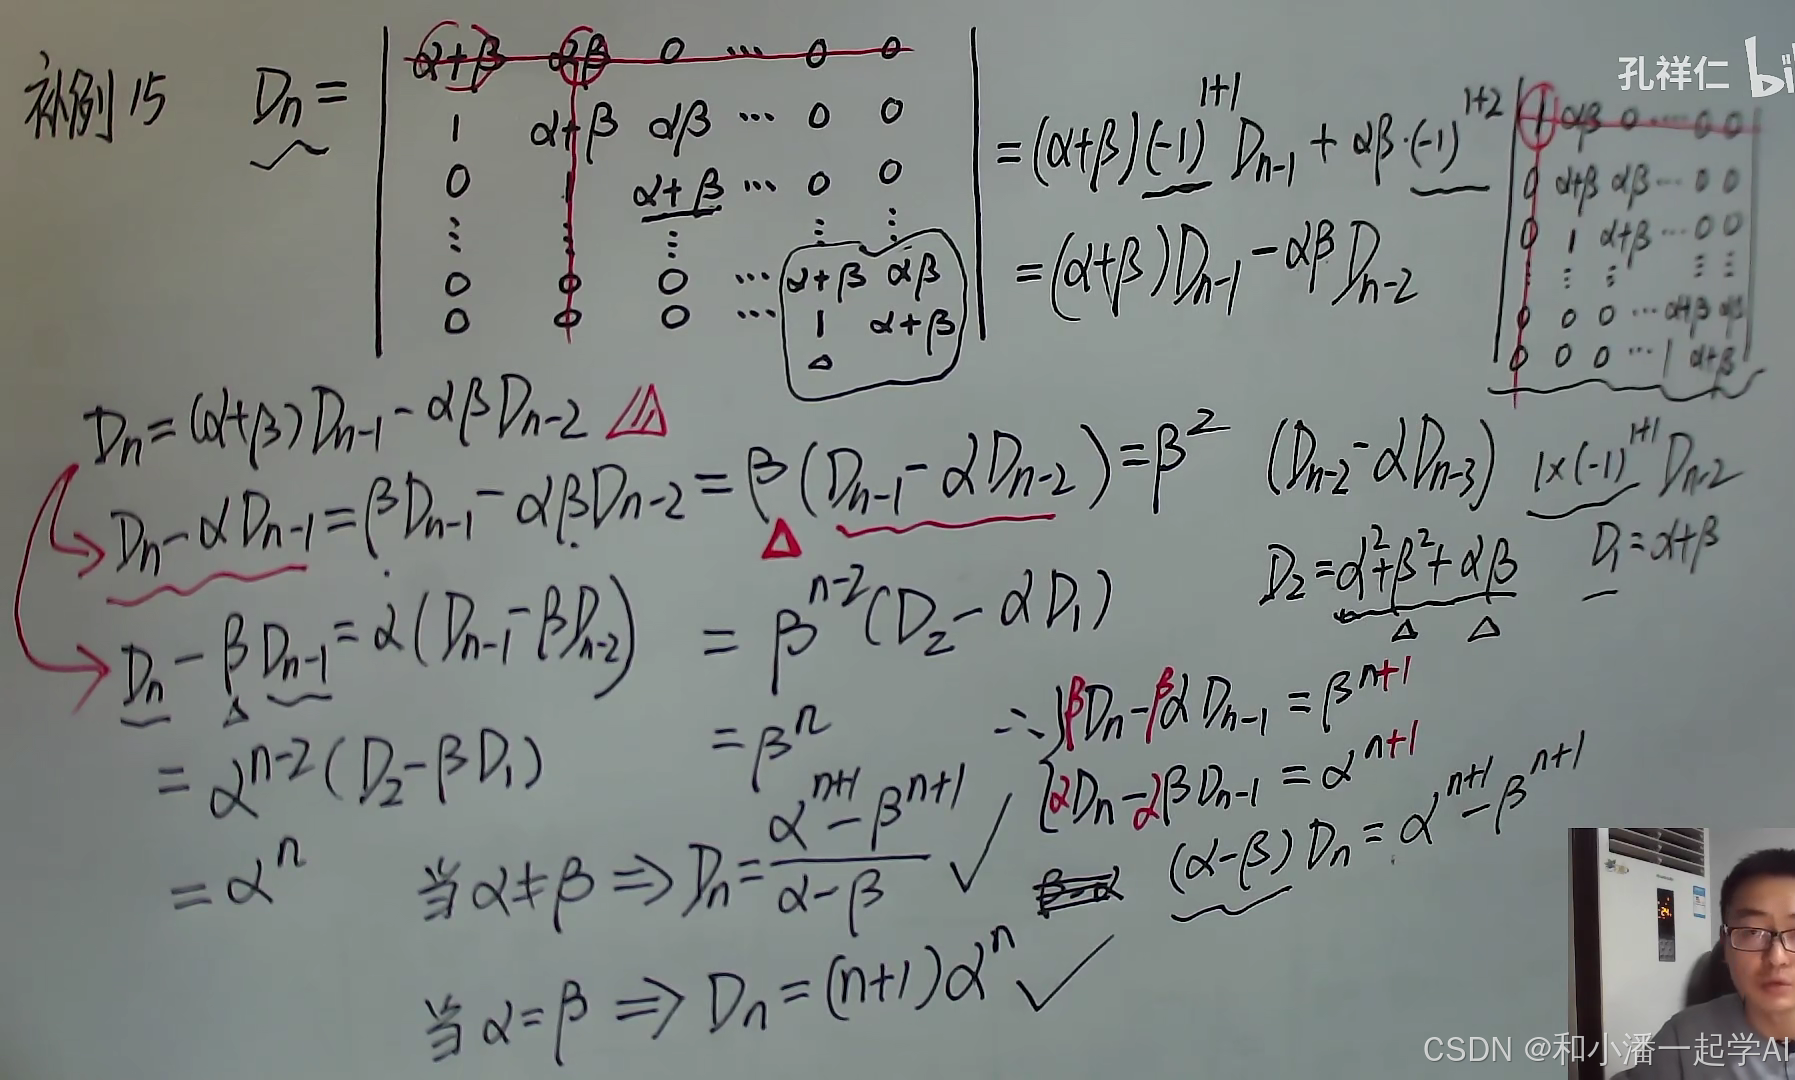 补例15 Dn =
α+β αβ 0 … 0 0
1 α+β αβ … 0 0
0 1 α+β … 0 0
⋮ ⋮ ⋮ ⋮ ⋮
0 0 0 … α+β αβ
0 0 0 … 1 α+β
△
= (α+β)(-1)^{1+1} D_{n-1} + αβ·(-1)^{1+2}
1 αβ 0 … 0 0
0 α+β αβ … 0 0
0 1 α+β … 0 0
⋮ ⋮ ⋮ ⋮ ⋮
0 0 0 … α+β αβ
0 0 0 … 1 α+β
= (α+β)D_{n-1} - αβ D_{n-2}
孔祥仁 bi
Dn = (α+β)D_{n-1} - αβD_{n-2}
Dn - αD_{n-1} = βD_{n-1} - αβD_{n-2} = β(D_{n-1} - αD_{n-2}) = β² (D_{n-2} - αD_{n-3})
1×(-1)^{1+1} D_{n-2}
= β^{n-2}(D₂ - αD₁)
D₂ = α²+β²+αβ D₁ = α+β
= β^n
Dn - βD_{n-1} = α(D_{n-1} - βD_{n-2})
= α^{n-2}(D₂ - βD₁)
= α^n
∴ { βDn - βαD_{n-1} = β^{n+1}
αDn - αβD_{n-1} = α^{n+1}
(α-β)Dn = α^{n+1} - β^{n+1}
当 α≠β ⇒ Dn = \frac{α^{n+1} - β^{n+1}}{α-β} ✓
当 α=β ⇒ Dn = (n+1)α^n ✓
CSDN @和小潘一起学AI